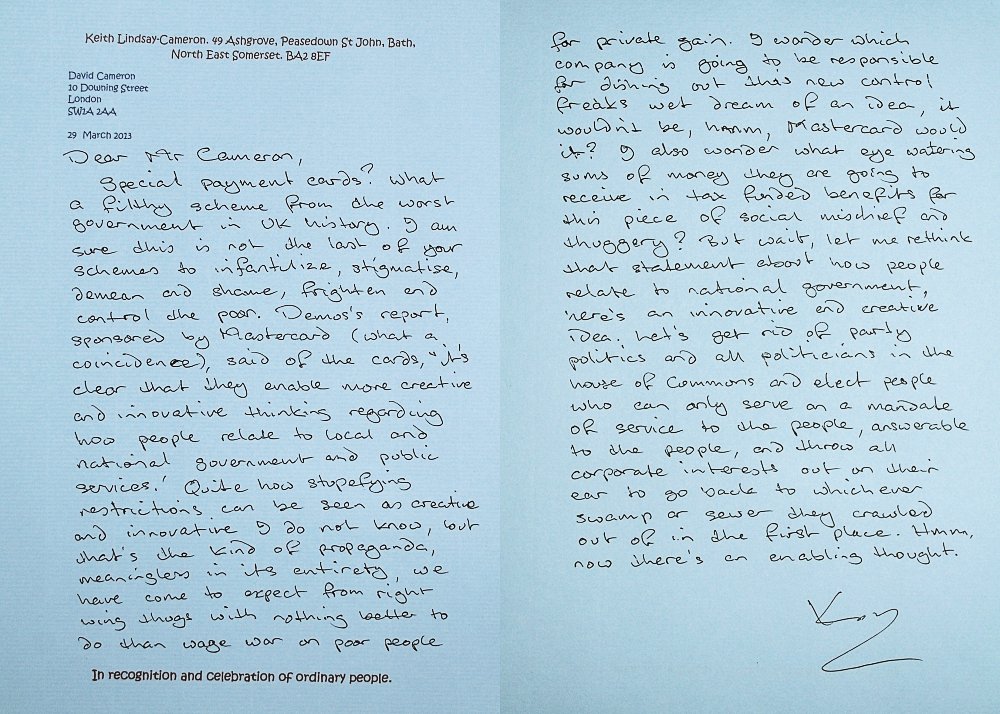 Keith Lindsay-Cameron. 49 Ashgrove, Peasedown St John, Bath,
North East Somerset. BA2 8EF
David Cameron
10 Downing Street
London
SW1A 2AA
29 March 2013
Dear Mr Cameron,
Special payment cards? What
a filthy scheme from the worst
government in UK history. I am
sure this is not the last of your
schemes to infantilize, stigmatise,
demean and shame, frighten and
control the poor. Demos's report,
sponsored by Mastercard (what a
coincidence), said of the cards, "it's
clear that they enable more creative
and innovative thinking regarding
how people relate to local and
national government and public
services.' Quite how stupefying
restrictions can be seen as creative
and innovative I do not know, but
that's the kind of propaganda,
meaningless in its entirety, we
have come to expect from right
wing thugs with nothing better to
do than wage war on poor people
In recognition and celebration of ordinary people.
for private gain. I wonder which
company is going to be responsible
for dishing out this new control
freaks wet dream of an idea, it
wouldn't be, hmmm, Mastercard would
it? I also wonder what eye watering
sums of money they are going to
receive in tax funded benefits for
this piece of social mischief and
thuggery? But wait, let me rethink
that statement about how people
relate to national government,
here's an innovative and creative
idea. Let's get rid of party
politics and all politicians in the
house of Commons and elect people
who can only serve on a mandate
of service to the people, answerable
to the people, and throw all
corporate interests out on their
ear to go back to whichever
swamp or sewer they crawled
out of in the first place. Hmmm,
now there's an enabling thought.